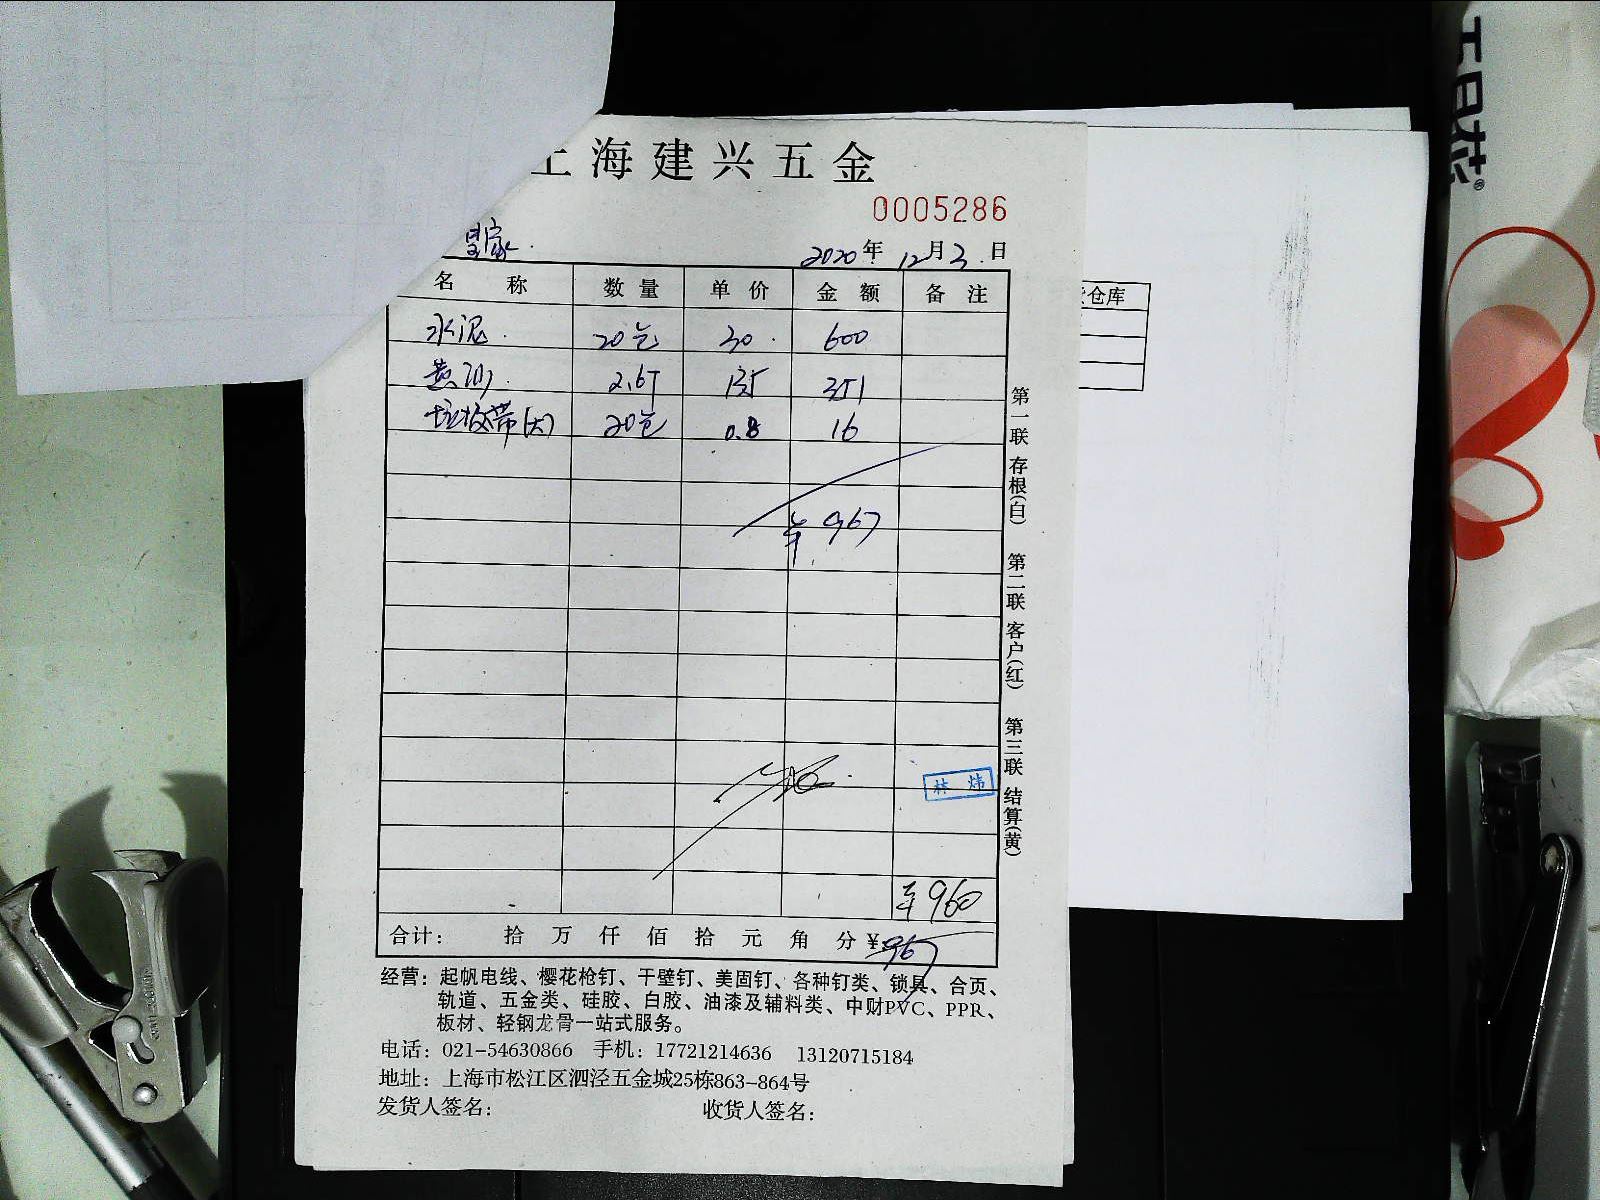 上海建兴五金
0005286
皇家.
2020年12月3日
名 称 数 量 单 价 金 额 备 注
水泥. 20包 30. 600
黄沙. 2.6T 135 351
垃圾带(大) 20包 0.8 16
¥ 967
林 炜
¥960
合计: 拾 万 仟 佰 拾 元 角 分 ¥967
经营: 起帆电线、樱花枪钉、干壁钉、美固钉、各种钉类、锁具、合页、
轨道、五金类、硅胶、白胶、油漆及辅料类、中财PVC、PPR、
板材、轻钢龙骨一站式服务。
电话: 021-54630866 手机: 17721214636 13120715184
地址: 上海市松江区泗泾五金城25栋863-864号
发货人签名: 收货人签名:
第一联 存根(白) 第二联 客户(红) 第三联 结算(黄)
仓库